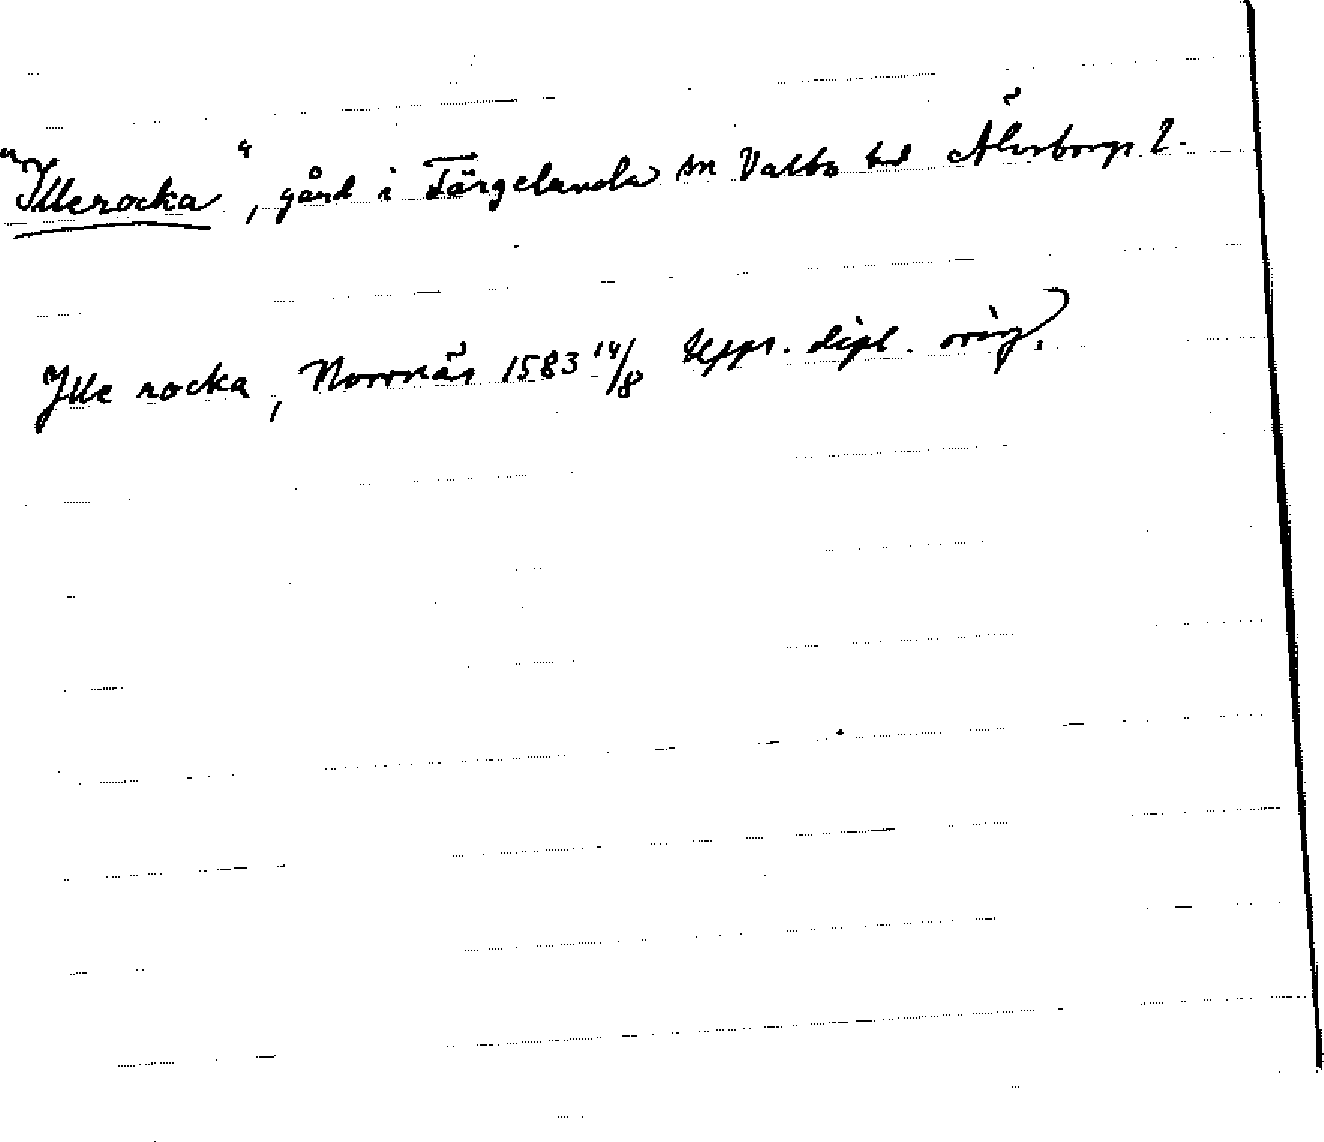 "Illerocka", gård i Färgelanda sn Valbo hd Älvsborgs l.
Jlle rocka, Norrnäs 1583 14/8 Upps. dipl. orig.